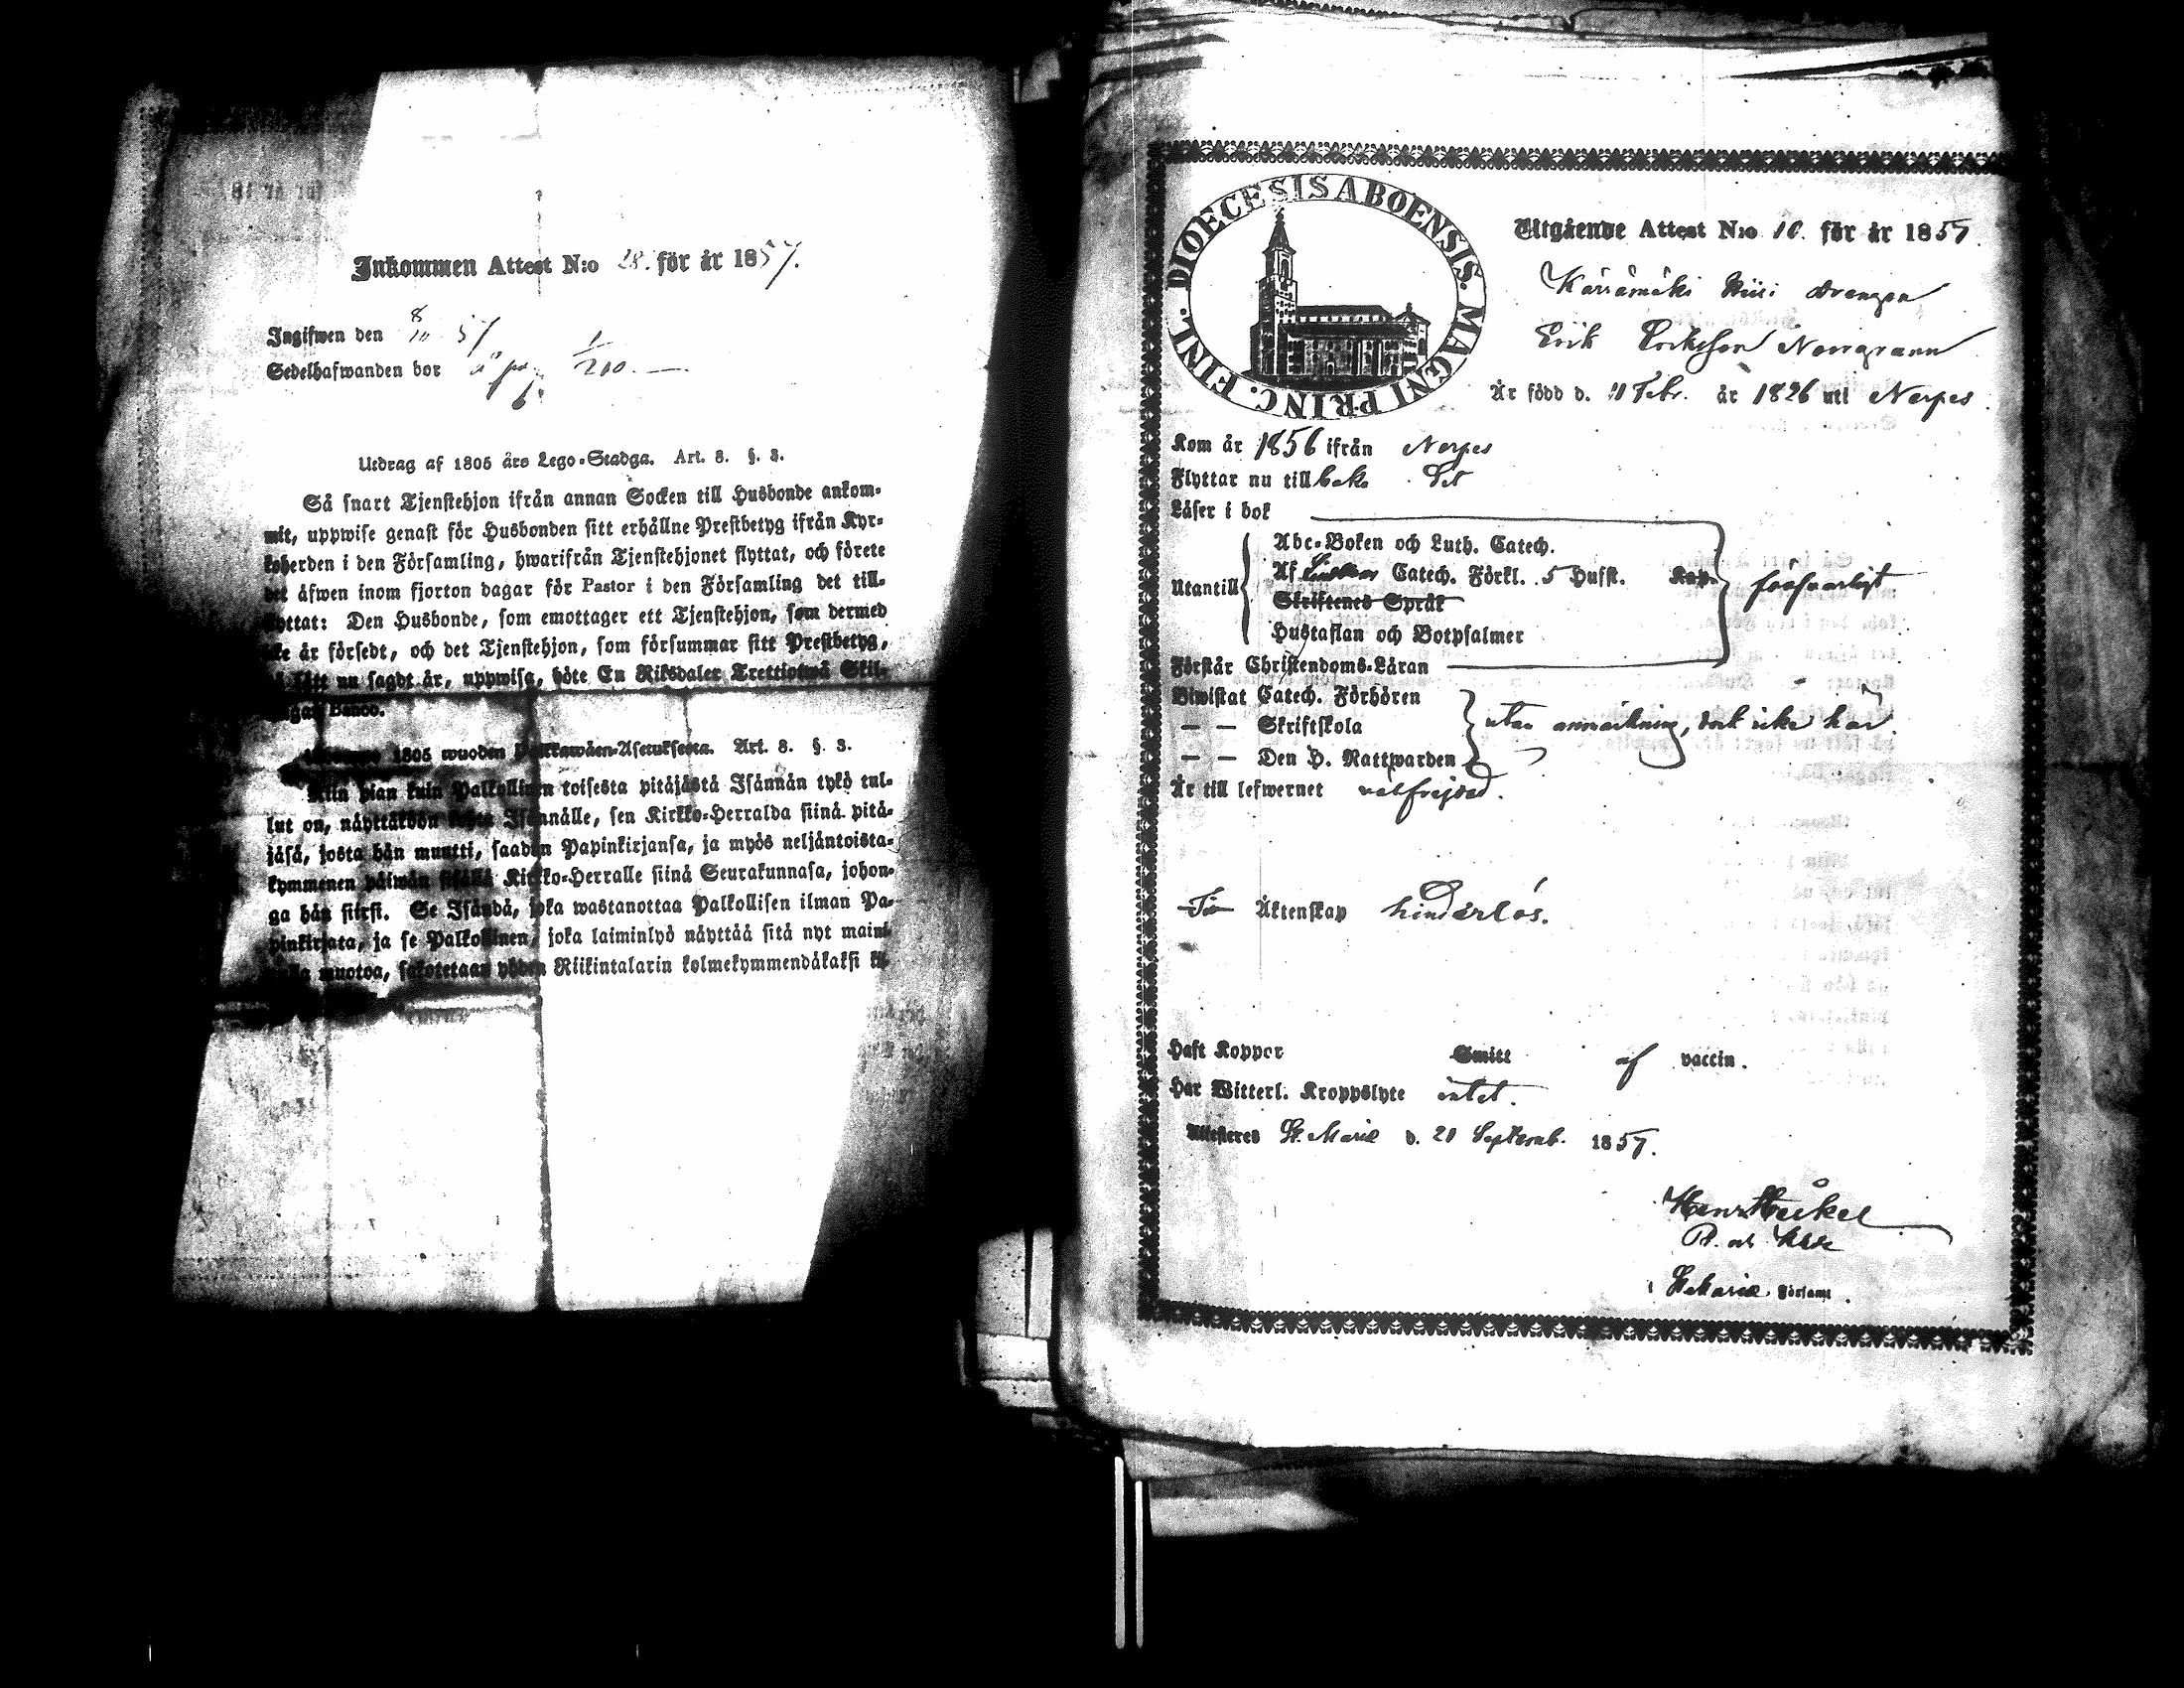 Inkommen Attest N:o 28. för år 1857.
Ingifwen den 8/10 57
Sedelhafwanden bor å pag. 1/210.
Utdrag af 1805 års Lego-Stadga. Art. 8. §. 3.
Så snart Tjenstehjon ifrån annan Socken till Husbonde ankom-
mit, uppwise genast för Husbonden sitt erhållne Prestbetyg ifrån Kyr-
koherden i den Församling, hwarifrån Tjenstehjonet flyttat, och förete
det äfwen inom fjorton dagar för Pastor i den Församling det till-
flyttat: Den Husbonde, som emottager ett Tjenstehjon, som dermed
icke är försedt, och det Tjenstehjon, som försummar sitt Prestbetyg,
på sätt nu sagdt är, uppwisa, böte En Riksdaler Trettiotwå Skil-
Banco.
1805 wuoden Palkkawäen-Asetuksesta. Art. 8. §. 3.
Niin pian kuin Palkollinen toisesta pitäjästä Isännän tykö tul-
lut on, näyttäköön Isännälle, sen Kirkko-Herralda siinä pitä-
jäsä, josta hän muutti, saadun Papinkirjansa, ja myös neljäntoista-
kymmenen päiwän sisällä Kirkko-Herralle siinä Seurakunnasa, johon-
ga hän siirsi. Se Isändä, joka wastanottaa Palkollisen ilman Pa-
pinkirjata, ja se Palkollinen, joka laiminlyö näyttää sitä nyt maini-
muotoa, sakotetaan yhden Riikintalarin kolmekymmendäkaksi kil-
DIOECESIS ABOENSIS. MAGNI PRINC. FINL.
Utgående Attest N:o 10. för år 1857.
Kärsämäki drengen
Erik Eriksson Norrgrann
Är född d. 11 Febr. år 1826 uti Nerpes.
Kom år 1856 ifrån Nerpes
Flyttar nu tillbaka
Läser i bok
Abc-Boken och Luth. Catech.
Utantill Af Catech. Förkl. 5 Hufst. Kap. försvarligt
Skriftenes Språk
Hustaflan och Botpsalmer
Förstår Christendoms-Läran
Biwistat Catech. Förhören
— — Skriftskola utan anmärkning, dock icke här.
— — Den H. Nattwarden
Är till lefwernet välfrejdad.
Till Äktenskap hinderlös.
Haft Koppor Smitt af vaccin.
Har Witterl. Kroppslyte intet.
Attesteras St. Marie d. 20 Septemb. 1857.
Henr. Heikel
P. och Khde
i St. Marie. Församl.